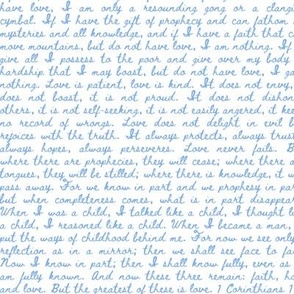 have love, I am only a resounding gong or a clangi
cymbal. If I have the gift of prophecy and can fathom
mysteries and all knowledge, and if I have a faith that c
move mountains, but do not have love, I am nothing. If
give all I possess to the poor and give over my body
hardship that I may boast, but do not have love, I ga
nothing. Love is patient, love is kind. It does not envy,
does not boast, it is not proud. It does not dishon
others, it is not self-seeking, it is not easily angered, it kee
no record of wrongs. Love does not delight in evil b
rejoices with the truth. It always protects, always trust
always hopes, always perseveres. Love never fails. B
where there are prophecies, they will cease; where there a
tongues, they will be stilled; where there is knowledge, it w
pass away. For we know in part and we prophesy in par
but when completeness comes, what is in part disappear
When I was a child, I talked like a child, I thought l
a child, I reasoned like a child. When I became a man,
put the ways of childhood behind me. For now we see only
reflection as in a mirror; then we shall see face to fa
Now I know in part; then I shall know fully, even as
am fully known. And now these three remain: faith, ho
and love. But the greatest of these is love. 1 Corinthians 1